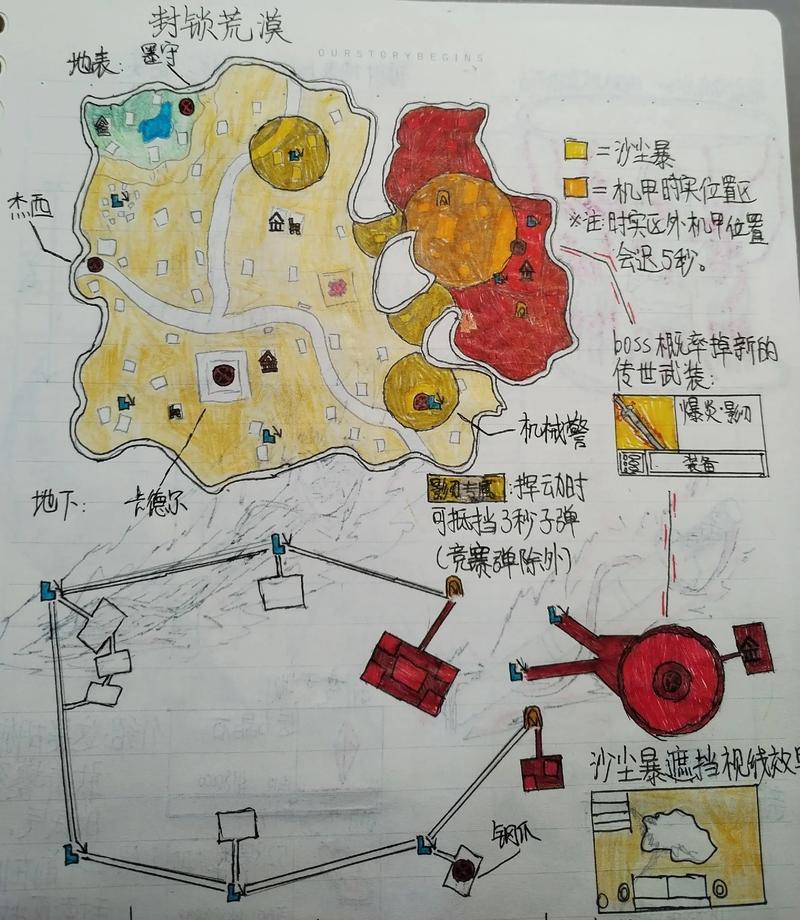 封锁荒漠
OURSTORYBEGINS
地表：墨守
=沙尘暴
=机甲时实位置区
※注时实区外机甲位置
会迟5秒。
杰西
boss概率掉新的
传世武装：
爆炎·影刃
装备
机械警
卡德尔
影刃专属：挥动时
可抵挡3秒子弹
（竞赛弹除外）
地下：
钢爪
沙尘暴遮挡视线效果